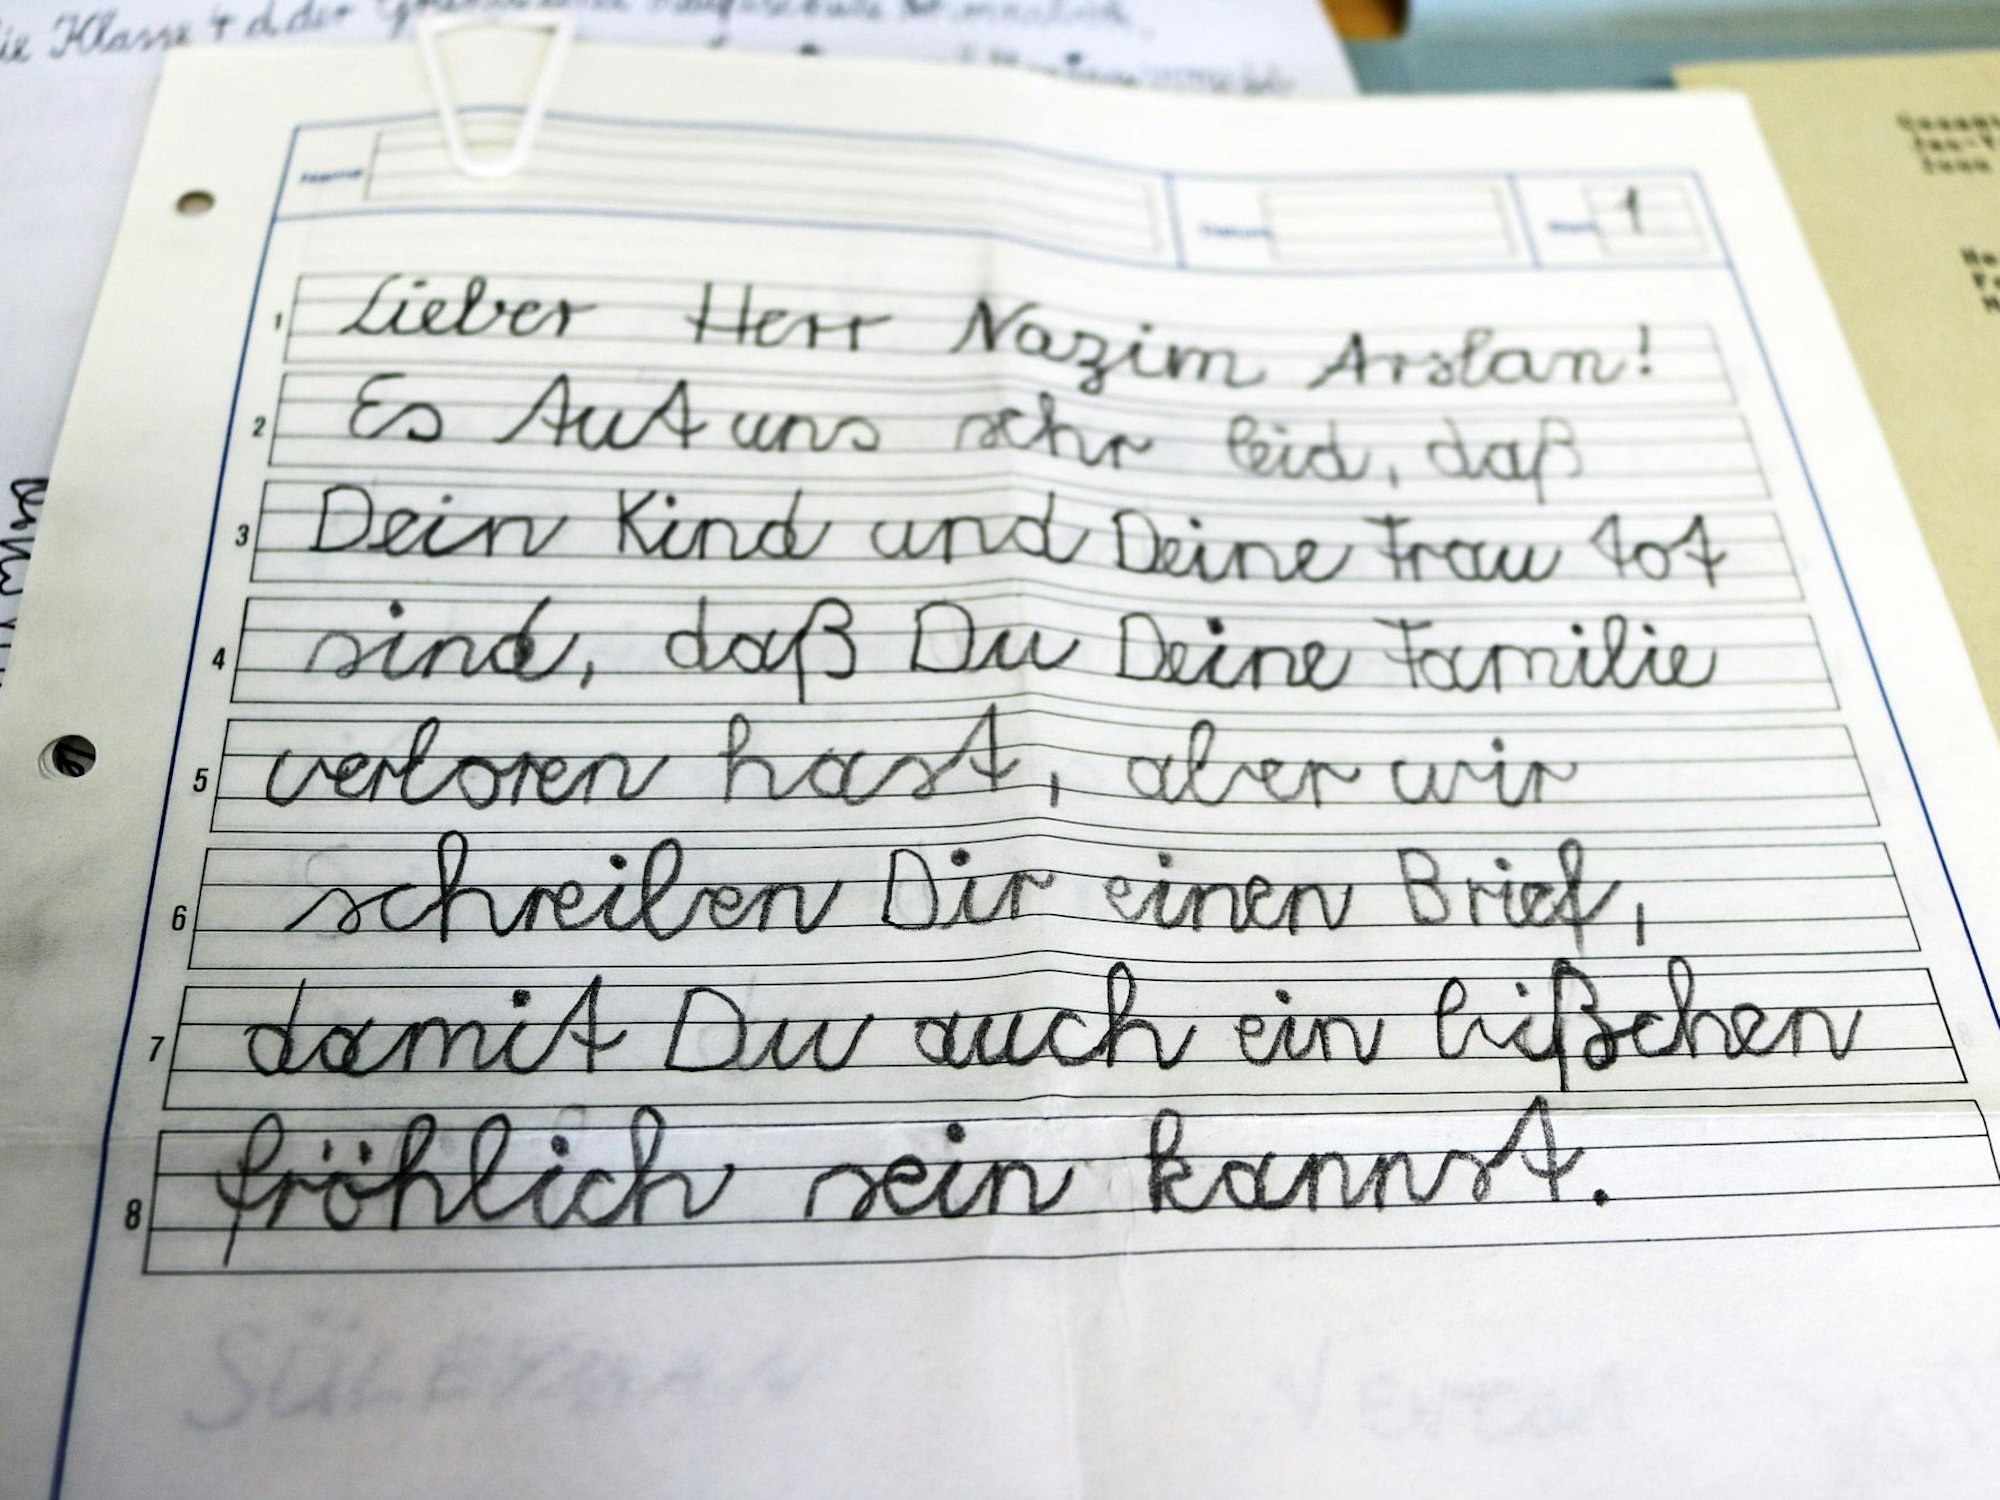 die Klasse 4 d der
Name
1
1 Lieber Herr Nazim Arslan!
2 Es tut uns sehr leid, daß
3 Dein Kind und Deine Frau tot
4 sind, daß Du Deine Familie
5 verloren hast, aber wir
6 schreiben Dir einen Brief,
7 damit Du auch ein bißchen
8 fröhlich sein kannst.